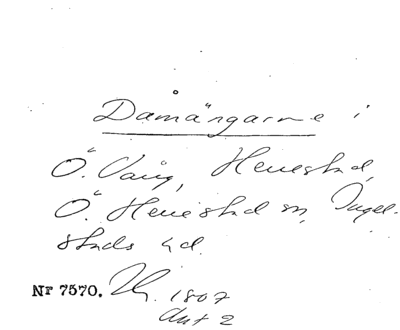 Damängarne i
Ö. Vång, Henestad,
Ö. Henestad sn, Ingel-
stads hd.
Nr 7570. 1807
Akt 2